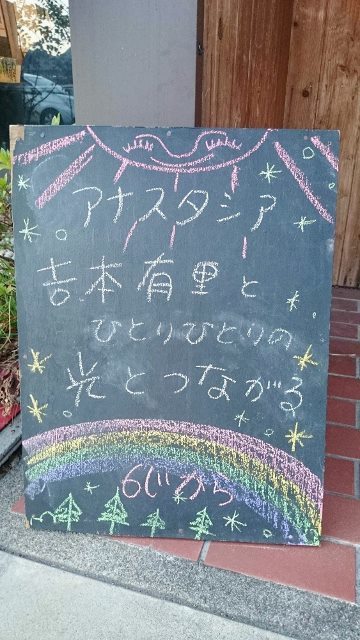 アナスタシア
吉本有里と
ひとりひとりの
光とつながる
6じから